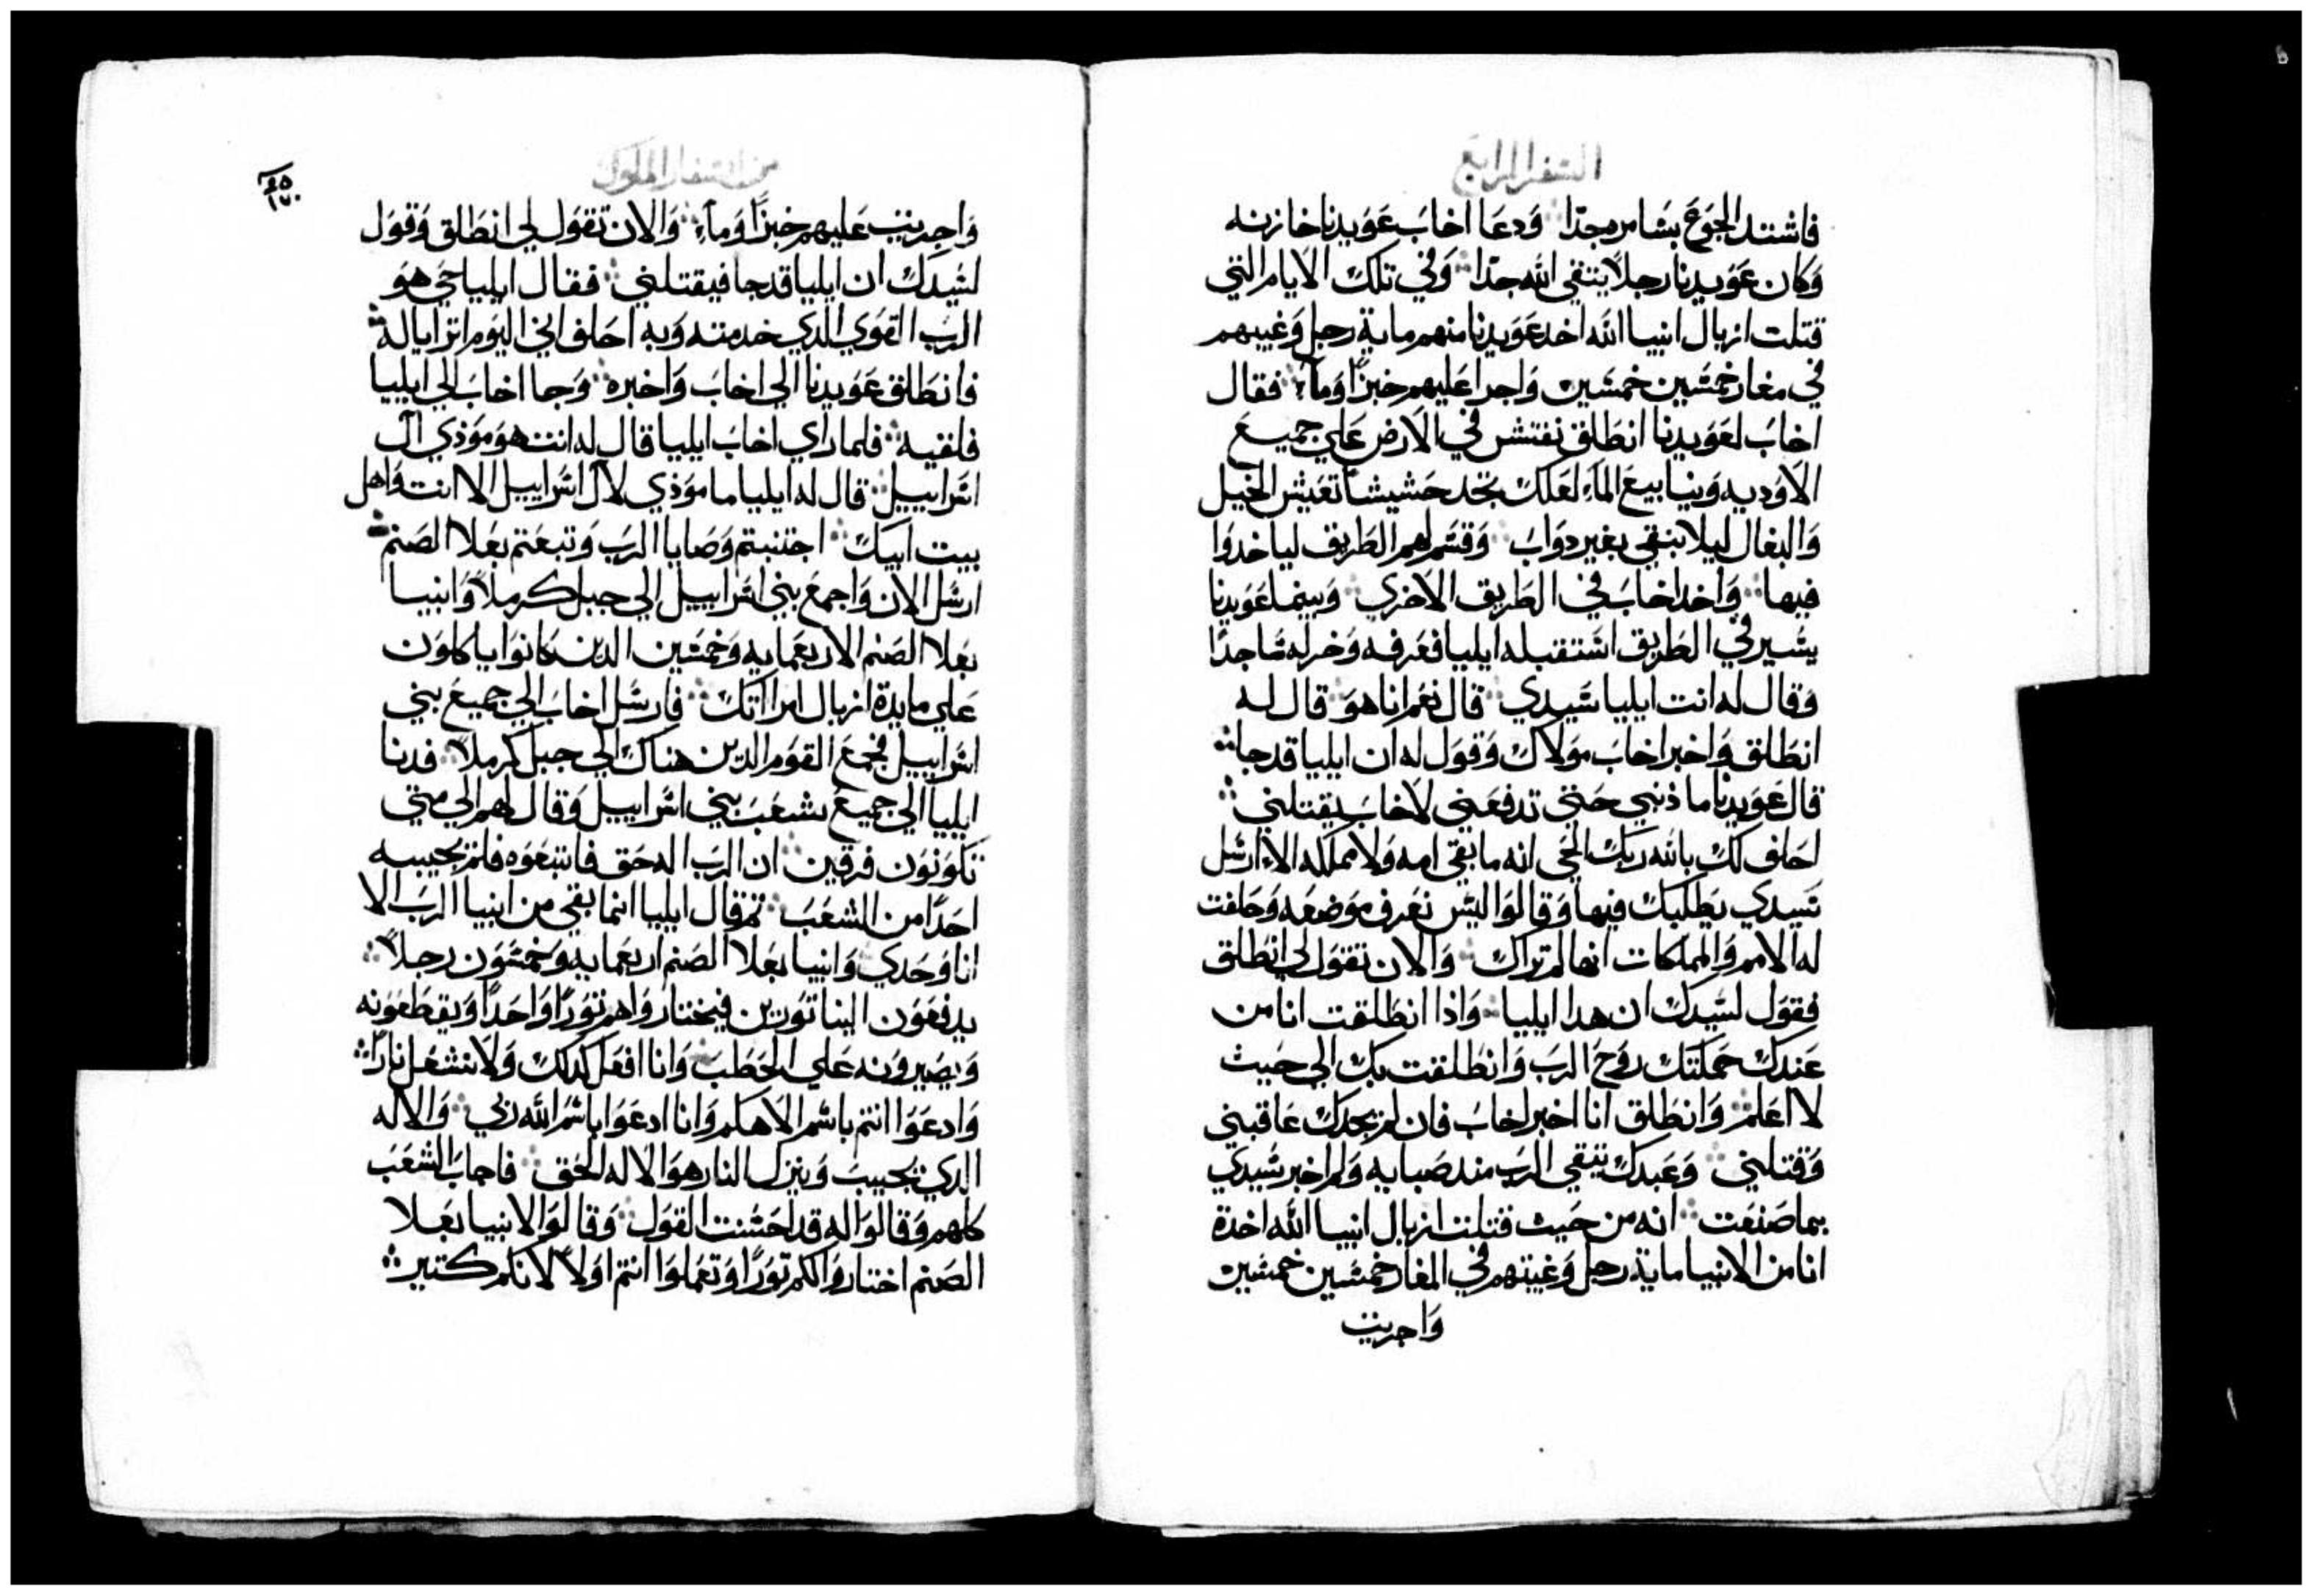 السفر الرابع
فاشتد الجوع بسامره جدا وَدعَا اخابَ عَوَيدنا خازنه
وَكان عَوَيدنا رجلاً يتقي الله جدا وَفي تلك الايام التي
قتلت ازبال انبيا الله اخد عَوَيدنا منهم ماية رجل وَغيبهم
في مغار خمسين خمسين وَاجرا عَليهم خبزًا وَماء فقال
اخابَ لعَوَيدنا انطَلق نفتش في الارض عَلي جميعَ
الاوَديه وَينابيعَ الماء لعَلك تجد حَشيشًا تعَيش الخيل
وَالبغال ليلا نبقي بغير دوَابَ وَقسم لهم الطَريق لياخدوَا
فيها وَاخد اخابَ في الطَريق الاخري وَبينما عَوَيدنا
يسير في الطَريق استقبله ايليا فعَرفه وَخر له ساجدًا
وَقال له انت ايليا سَيدي قال نعَم انا هوَ قال له
انطَلق وَاخبر اخابَ موَلاك وَقوَل له ان ايليا قد جا
قال عَوَيدنا ما ذنبي حَتي تدفعَني لاخابَ يقتلني
احَلف لك بالله ربك الحَي انه ما بقي امه وَلا مملكه الا ارسل
سَيدي يطَلبك فيها وَقالوَا ليس نعَرف موَضعَه وَحَلفت
له الامم وَالمملكات انها لم تراك وَالان تقوَل لي انطَلق
فقوَل لسَيدك ان هدا ايليا وَاذا انطَلقت انا من
عَندك حَملتك روَحَ الربَ وَانطَلقت بك الي حَيث
لا اعَلم وَانطَلق انا اخبر اخابَ فان لم يجدك عَاقبني
وَقتلني وَعَبدك يتقي الربَ مند صبايه وَلم اخبر سَيدي
بما صنعَت انه من حَيث قتلت ازبال انبيا الله اخدة
انا من الانبيا ماية رجل وَغيبتهم في المغار خمسين خمسين
وَاجريت
من اسفار الملوك
٤٥
١٧٠
وَاجريت عَليهم خبزًا وَماء وَالان تقوَل لي انطَلق وَقوَل
لسَيدك ان ايليا قد جا فيقتلني فقال ايليا حَي هوَ
الربَ القوَي الدي خدمته وَبه احَلف اني اليوَم اترايا له
فانطَلق عَوَيدنا الي اخابَ وَاخبره وَجا اخابَ الي ايليا
فلقيه فلما راي اخابَ ايليا قال له انت هوَ موَذي ال
اسَراييل قال له ايليا ما موَذي لال اسَراييل الا انت وَاهل
بيت ابيك اجتنبتم وَصايا الربَ وَتبعَتم بعَلا الصنم
ارسل الان وَاجمعَ بني اسَراييل الي جبل كرملا وَانبيا
بعَلا الصنم الاربعَمايه وَخمسَين الدين كانوَا ياكلوَن
عَلي مايدة ازبال امراتك فارسَل اخابَ الي جميعَ بني
اسَراييل فجمعَ القوَم الدين هناك الي جبل كرملا فدنا
ايليا الي جميعَ شعَبَ بني اسَراييل وَقال لهم الي متي
تكوَنوَن فرقين ان الربَ اله حَق فاتبعَوَه فلم يجيبه
احَدًا من الشعَبَ ثم قال ايليا انما بقي من انبيا الربَ الا
انا وَحَدي وَانبيا بعَلا الصنم اربعَمايه وَخمسَوَن رجلاً
يدفعَوَن الينا توَرين فيختاروَا هم توَرًا وَاحَدًا وَيقطَعَوَنه
وَيصيروَنه عَلي الحَطَبَ وَانا افعَل كدلك وَلا نشعَل نارًا
وَادعَوَا انتم باسَم الاهكم وَانا ادعَوَا باسَم الله ربي وَالاله
الدي يجيبَ وَينزل النار هوَ الاله الحَق فاجابَ الشعَبَ
كلهم وَقالوَا له قد احَسَنت القوَل وَقالوَا لانبيا بعَلا
الصنم اختاروَا لكم توَرًا وَتعَملوَا انتم اوَلاً لانكم كتير